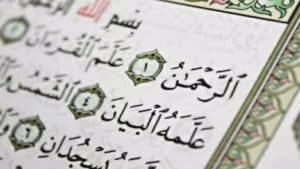 بِسْمِ ٱللَّهِ ٱلرَّحْمَٰنِ
ٱلرَّحْمَٰنُ ١ عَلَّمَ ٱلْقُرْءَانَ ٢
عَلَّمَهُ ٱلْبَيَانَ ٤ ٱلشَّمْسُ
يَسْجُدَانِ ٦